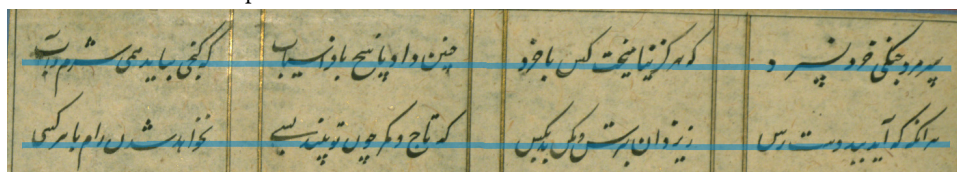 سر مرد جنگی خرد نسپرد که هرگز نیامیخت کین با خرد چنین داد پاسخ بافراسیاب که لختی بباید همی شرم و آب
هرانگه که آید ببد دست رس ز یزدان بترس و مکن بد بکس که تاج و کمر چون تو بیند بسی نخواهد شدن رام با هر کسی